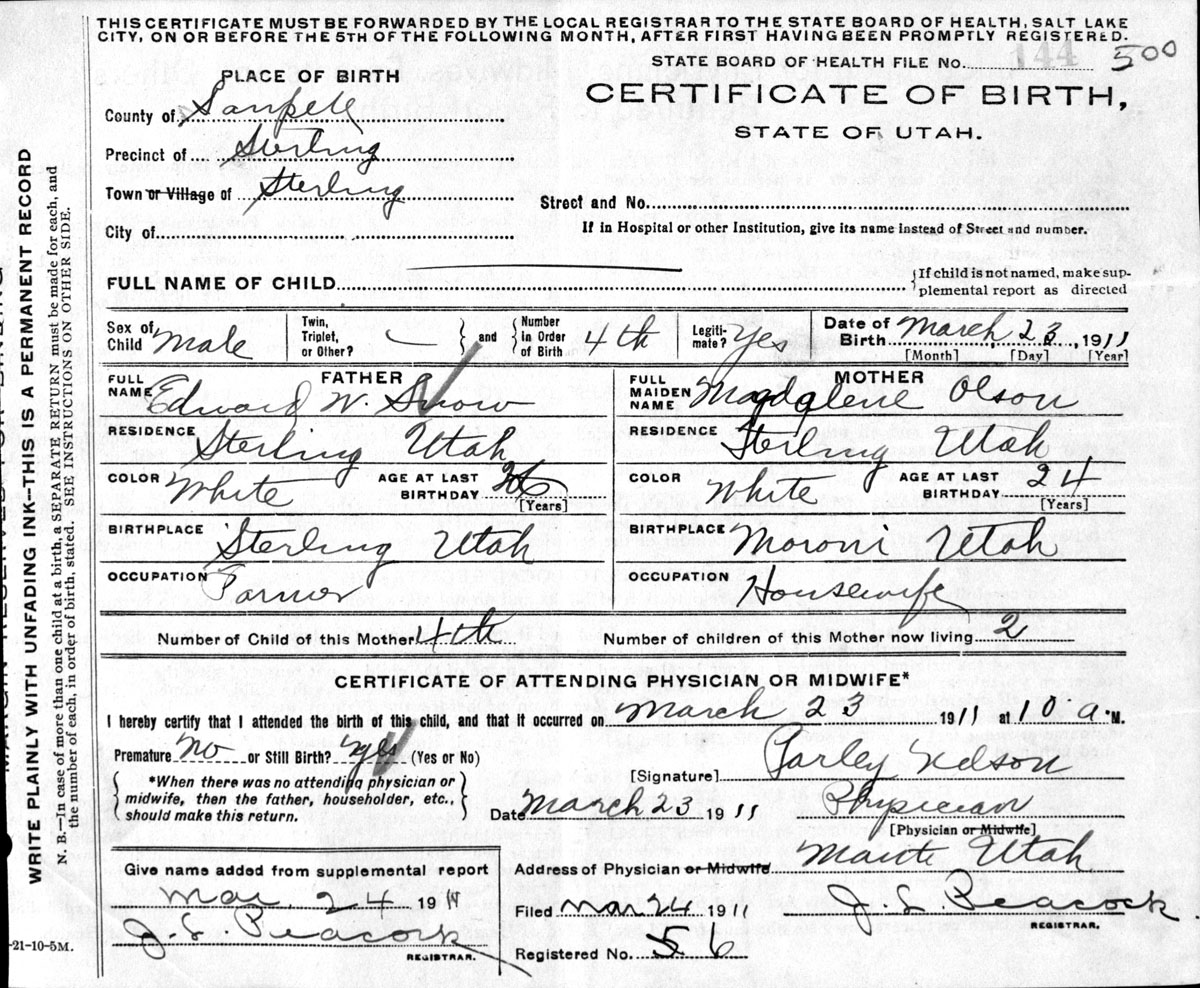 THIS CERTIFICATE MUST BE FORWARDED BY THE LOCAL REGISTRAR TO THE STATE BOARD OF HEALTH, SALT LAKE
CITY, ON OR BEFORE THE 5TH OF THE FOLLOWING MONTH, AFTER FIRST HAVING BEEN PROMPTLY REGISTERED.
STATE BOARD OF HEALTH FILE No. 144 500
PLACE OF BIRTH
CERTIFICATE OF BIRTH,
STATE OF UTAH.
County of Sanpete
Precinct of Sterling
Town or Village of Sterling
Street and No.
City of
If in Hospital or other Institution, give its name instead of Street and number.
FULL NAME OF CHILD
If child is not named, make sup-
plemental report as directed
Sex of Child Male
Twin, Triplet, or Other?
and
Number in Order of Birth 4th
Legiti-mate? Yes
Date of Birth March 23, 1911
[Month] [Day] [Year]
FATHER
FULL NAME Edward W. Snow
RESIDENCE Sterling Utah
COLOR White AGE AT LAST BIRTHDAY 26
[Years]
BIRTHPLACE Sterling Utah
OCCUPATION Farmer
MOTHER
FULL MAIDEN NAME Magdalene Olson
RESIDENCE Sterling Utah
COLOR White AGE AT LAST BIRTHDAY 24
[Years]
BIRTHPLACE Moroni Utah
OCCUPATION Housewife
Number of Child of this Mother 4th Number of children of this Mother now living 2
CERTIFICATE OF ATTENDING PHYSICIAN OR MIDWIFE*
I hereby certify that I attended the birth of this child, and that it occurred on March 23 1911 at 10 a.M.
Premature No or Still Birth? Yes (Yes or No)
*When there was no attending physician or
midwife, then the father, householder, etc.,
should make this return.
[Signature] Parley Nelson
Date March 23 1911 Physician
[Physician or Midwife]
Address of Physician or Midwife Manti Utah
Give name added from supplemental report
Mar 24 1911
J. L. Peacock
REGISTRAR.
Filed Mar 24 1911 J. L. Peacock
REGISTRAR.
Registered No. 56
-21-10-5M.
MARGIN RESERVED FOR BINDING
WRITE PLAINLY WITH UNFADING INK—THIS IS A PERMANENT RECORD
N. B.—In case of more than one child at a birth, a SEPARATE RETURN must be made for each, and
the number of each, in order of birth, stated. SEE INSTRUCTIONS ON OTHER SIDE.